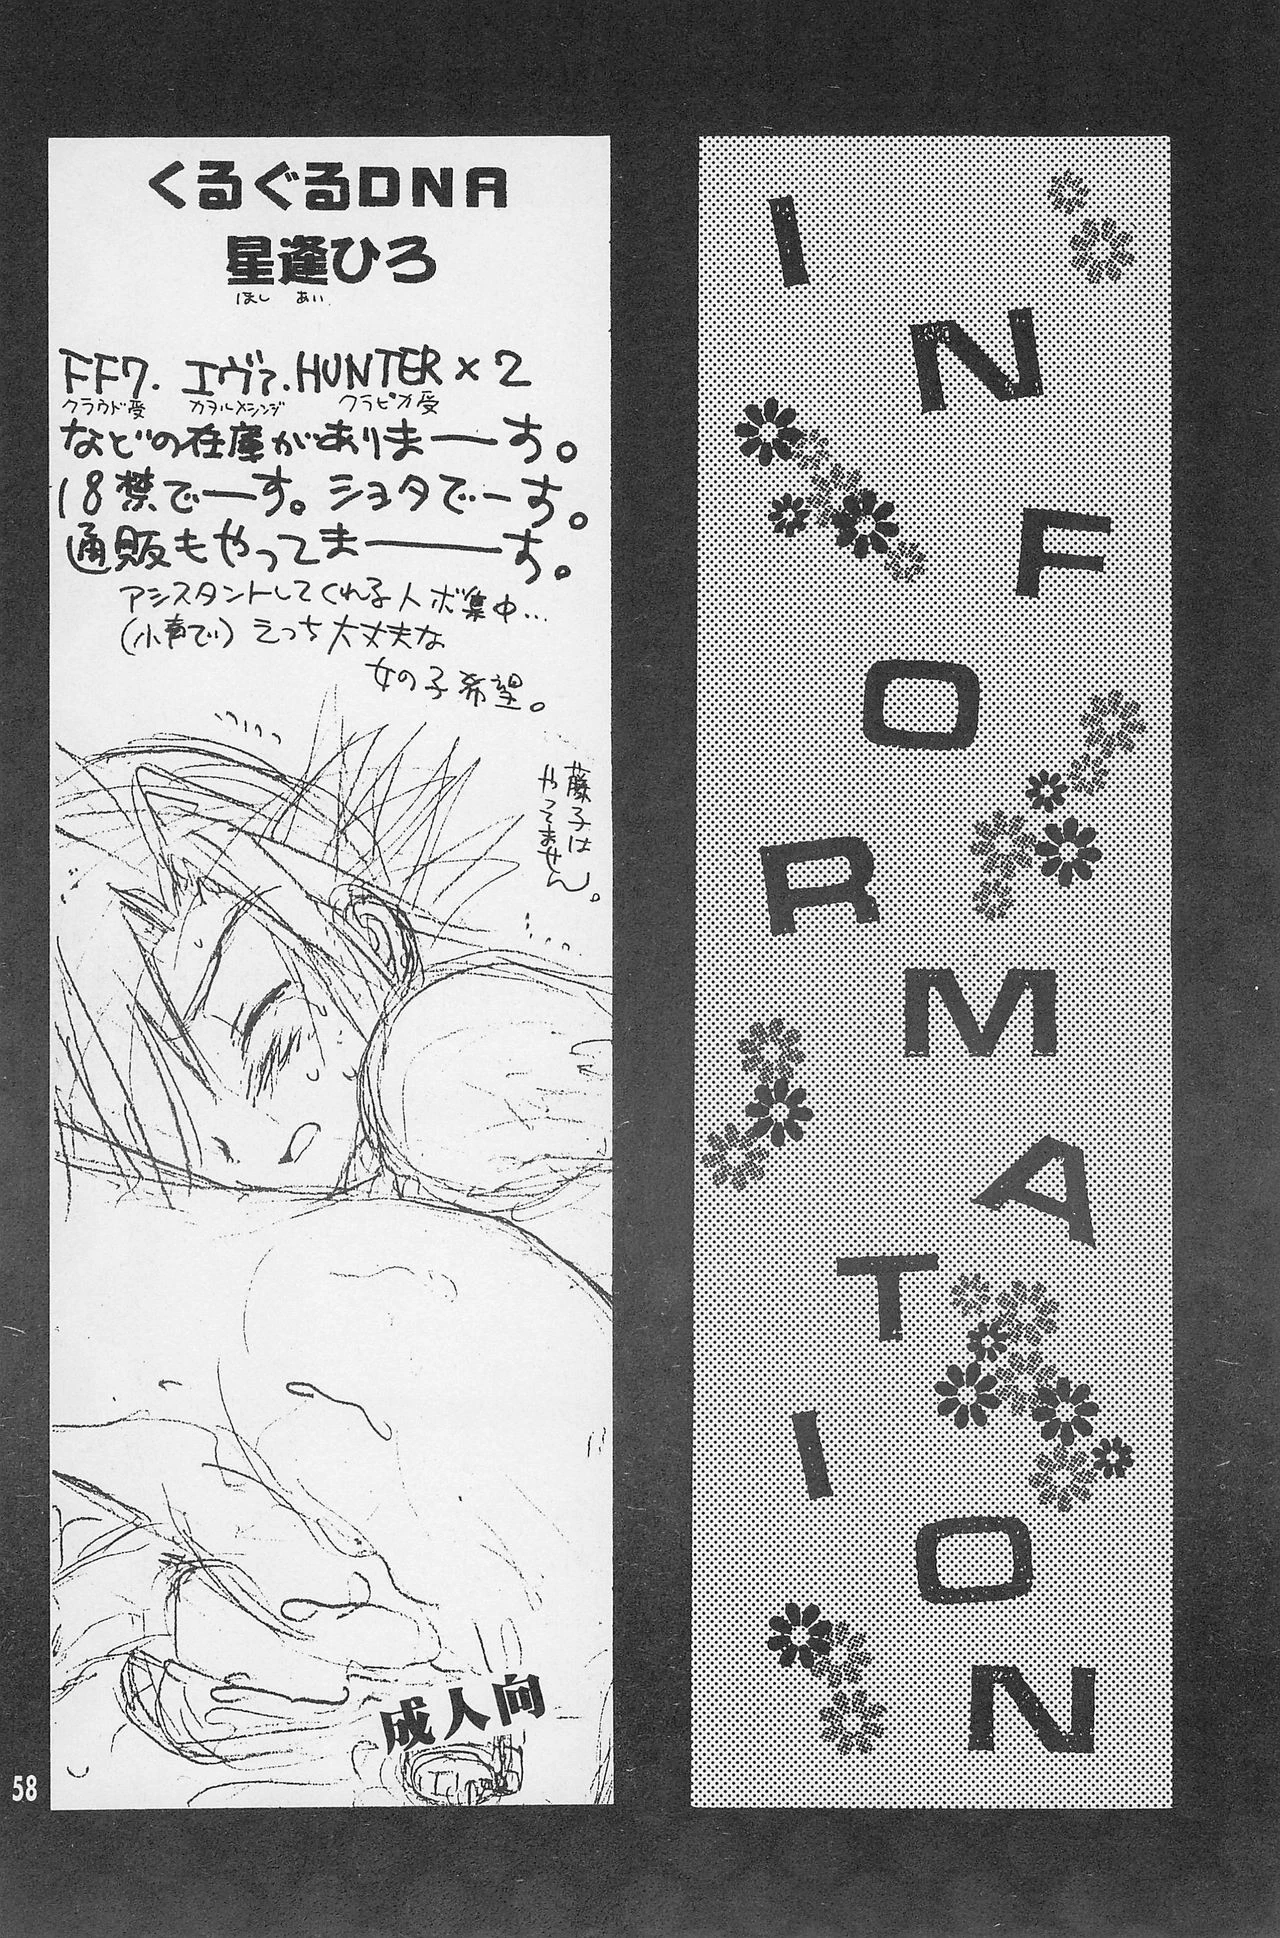 INFORMATION
くるぐるDNA
星逢ひろ
ほし あい
FF7. エヴァ. HUNTER×2
クラウド受 カヲル×シンジ クラピカ受
などの在庫がありまーーす。
18禁でーーす。ショタでーす。
通販もやってまーーーーす。
アシスタントしてくれる人ボ集中…
(小声で) えっち大丈夫な
女の子希望。
藤子は
やってません。
成人向
58